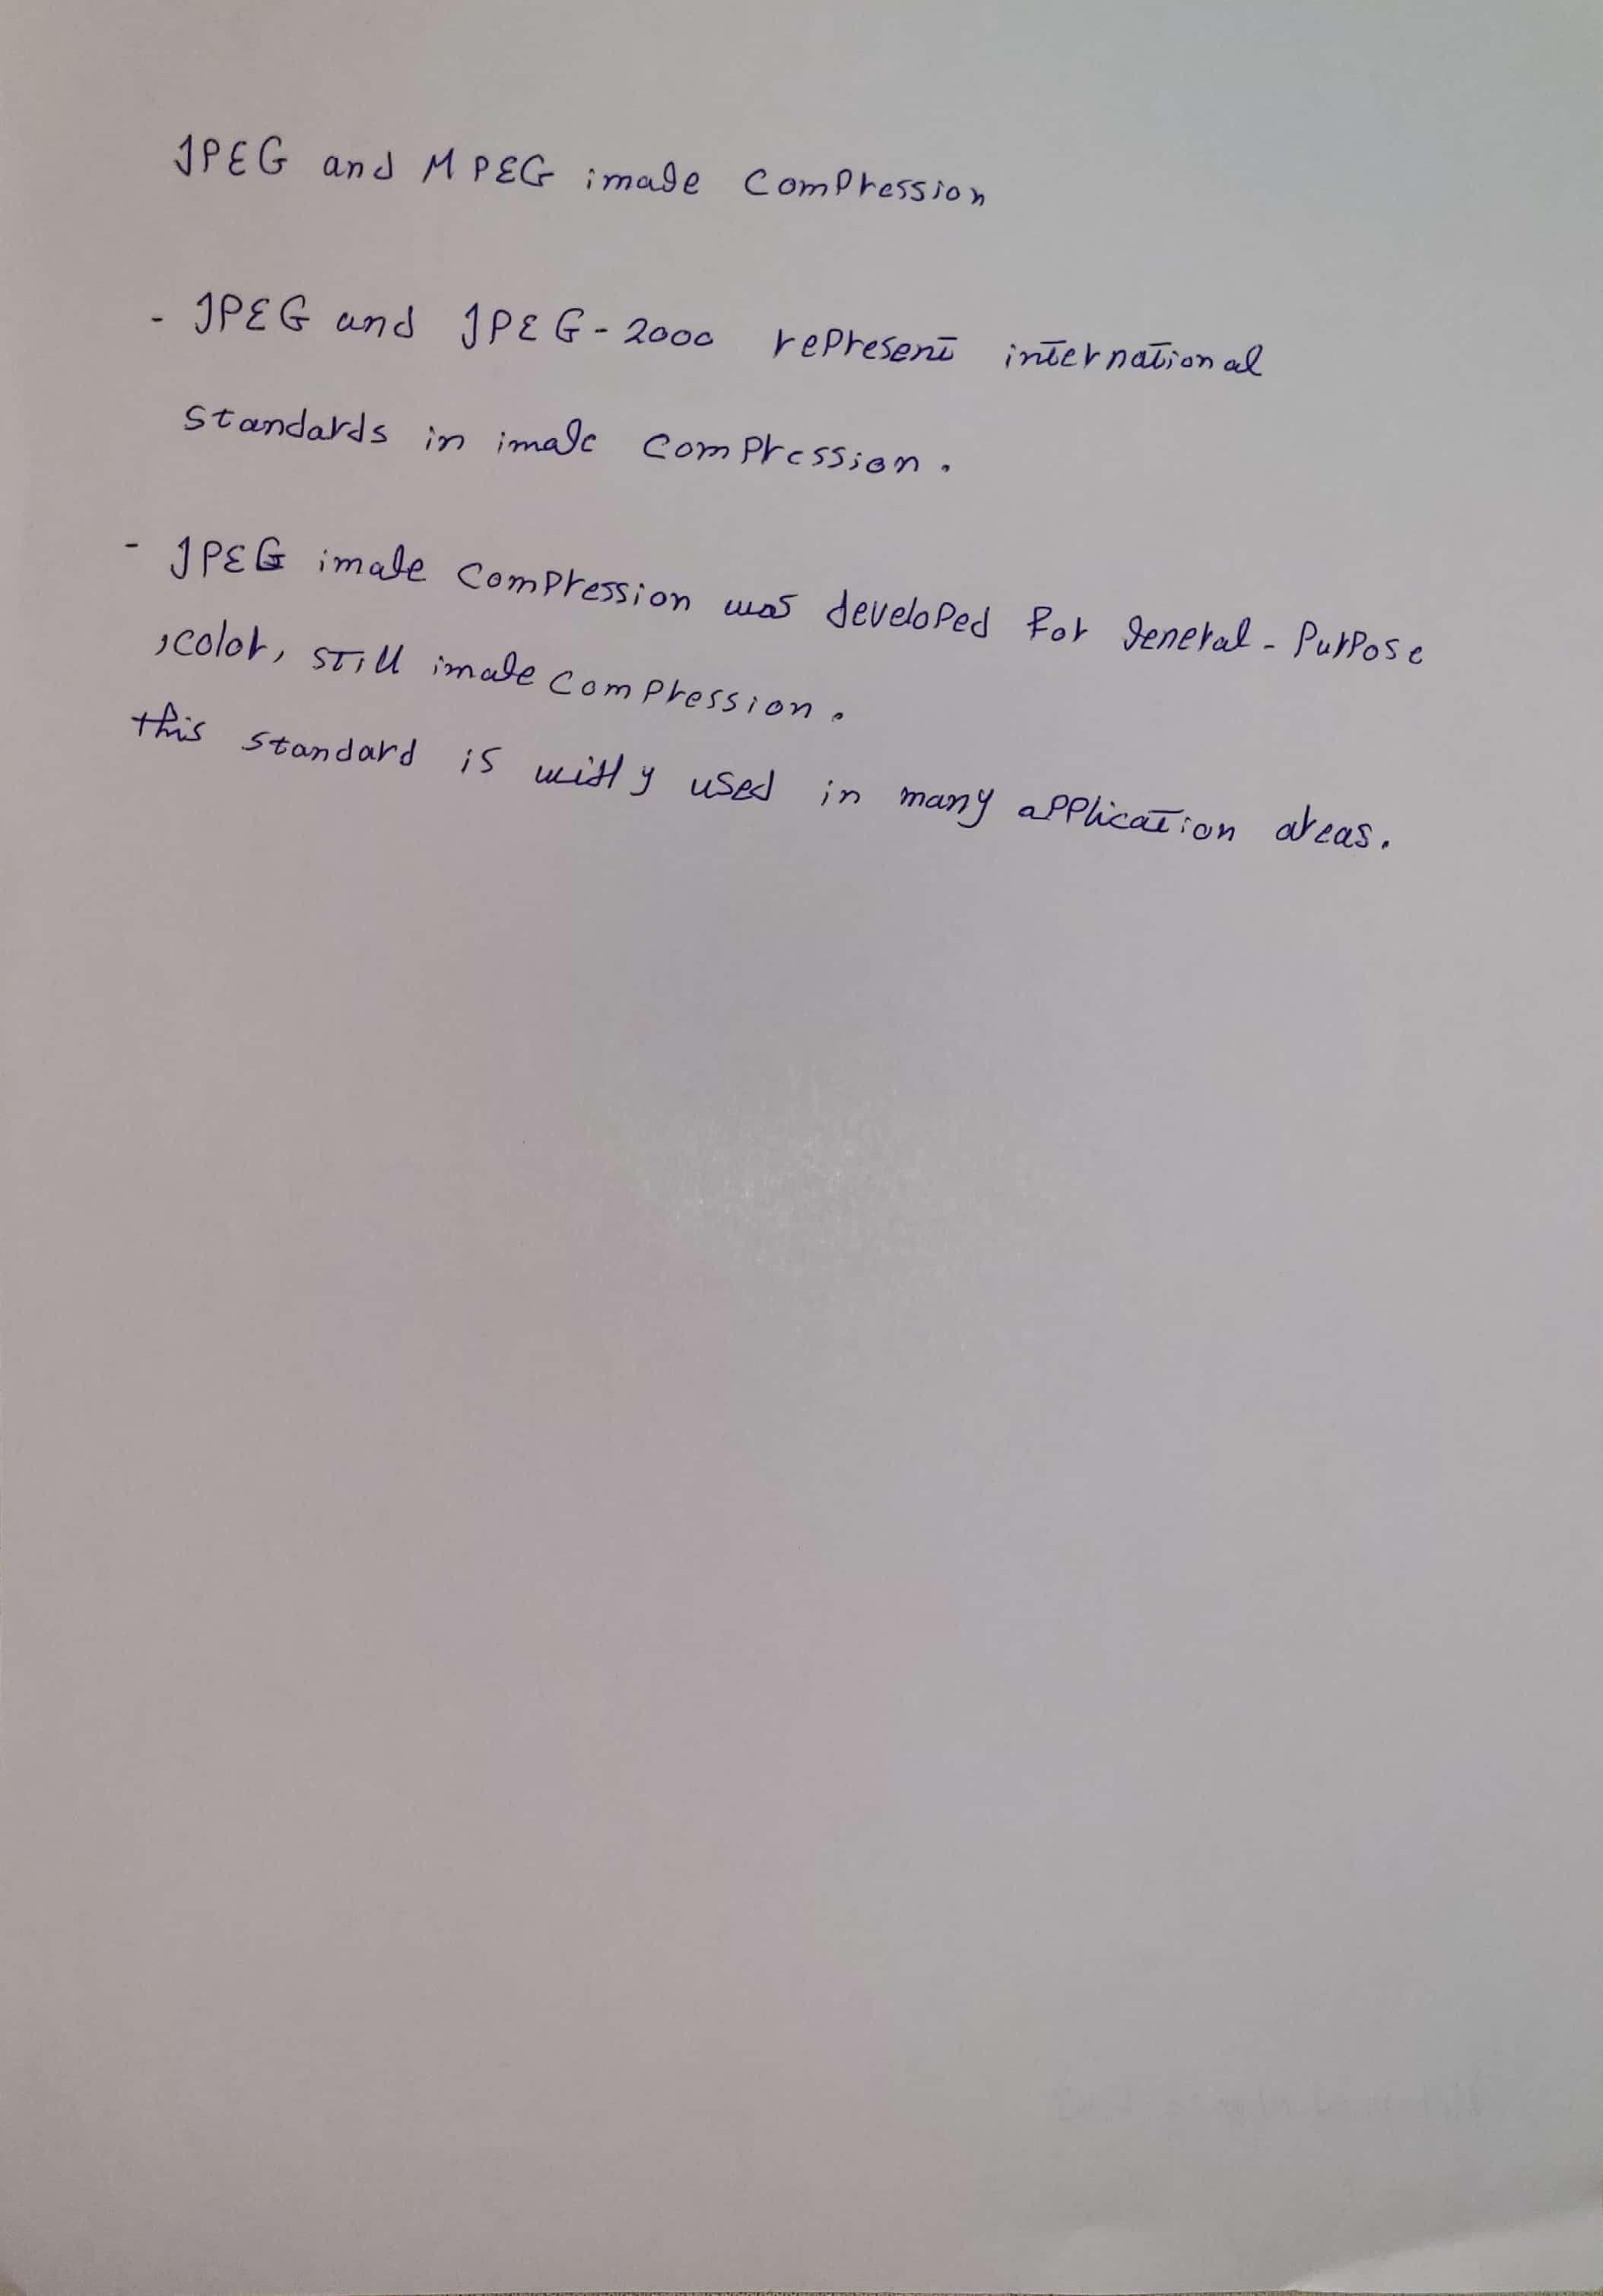 JPEG and MPEG image compression
- JPEG and JPEG-2000 represent international
standards in image compression.
- JPEG image compression was developed for general-purpose
,color, still image compression.
this standard is widly used in many application areas.